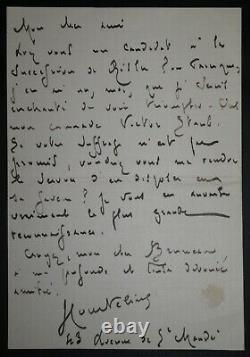 Mon cher ami
Avez vous un candidat à la
succession de
j'en ai un, moi, que je serais
enchanté de voir triompher. C'est
mon camarade Victor Staub.
Si votre suffrage n'est pas
promis, voudrez vous me rendre
le service d'en disposer en
sa faveur? Je vous en aurai
vraiment la plus grande
reconnaissance.
Croyez mon cher Bruneau
à ma profonde et toute dévouée
amitié.
43 Avenue de St Mandé